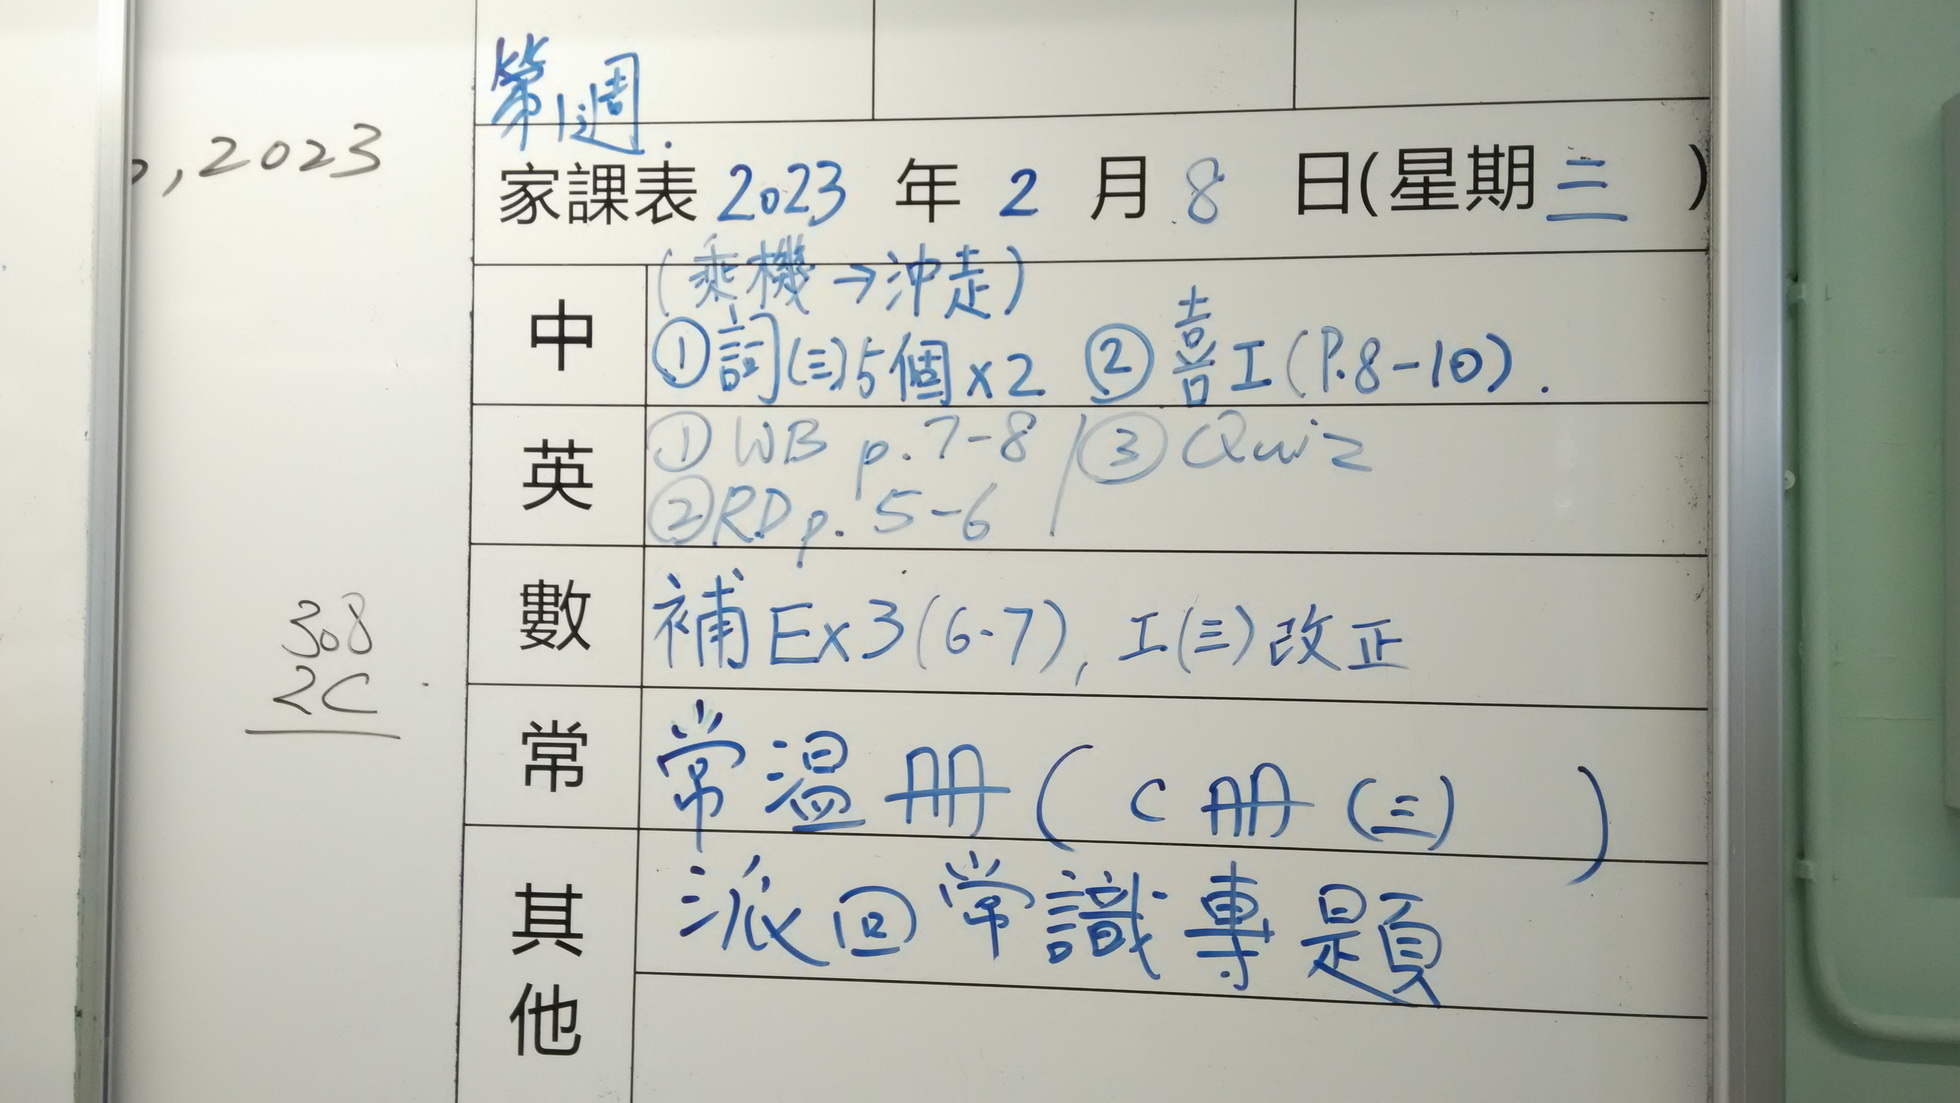 , 2023
308
2C
第1週.
家課表 2023 年 2 月 8 日(星期三)
中
(乘機→沖走)
①詞(三)5個x2 ②喜工(P.8-10).
英
①WB p.7-8 / ③Quiz
②RD p.5-6
數
補Ex3(6-7), 工(三)改正
常
常溫册(C册(三) )
其他
派回常識專題